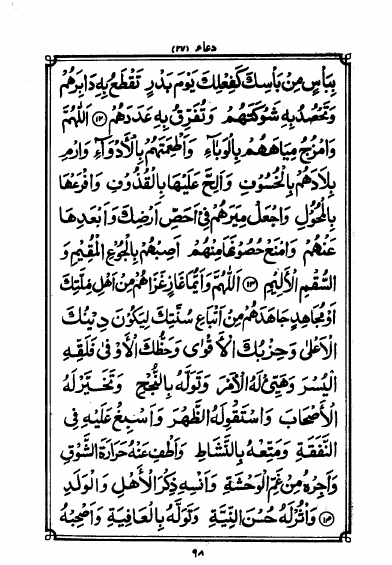 دعاء (٢٧)
بِبَأْسٍ مِنْ بَأْسِكَ كَفِعْلِكَ يَوْمَ بَدْرٍ تَقْطَعُ بِهِ دَابِرَهُمْ
وَتَحْصُدُ بِهِ شَوْكَتَهُمْ وَتُفَرِّقُ بِهِ عَدَدَهُمْ ﴿١٢﴾ اَللّٰهُمَّ
وَامْزُجْ مِيَاهَهُمْ بِالْوَبَاءِ وَاَطْعِمَتَهُمْ بِالْأَدْوَاءِ وَارْمِ
بِلَادَهُمْ بِالْخُسُوفِ وَاَلِحَّ عَلَيْهَا بِالْقُذُوفِ وَافْرَعْهَا
بِالْمُحُولِ وَاجْعَلْ مِيَرَهُمْ فِى اَحَصِّ اَرْضِكَ وَاَبْعَدِهَا
عَنْهُمْ وَامْنَعْ حُصُونَهَا مِنْهُمْ اَصِبْهُمْ بِالْجُوعِ الْمُقِيمِ وَ
السُّقْمِ الْأَلِيمِ ﴿١٣﴾ اَللّٰهُمَّ وَاَيُّمَا غَازٍ غَزَاهُمْ مِنْ اَهْلِ مِلَّتِكَ
اَوْ مُجَاهِدٍ جَاهَدَهُمْ مِنْ اَتْبَاعِ سُنَّتِكَ لِيَكُونَ دِينُكَ
الْأَعْلٰى وَحِزْبُكَ الْأَقْوٰى وَحَظُّكَ الْأَوْفٰى فَلَقِّهِ
الْيُسْرَ وَهَيِّئْ لَهُ الْأَمْرَ وَتَوَلَّهُ بِالنُّجْحِ وَتَخَيَّرْ لَهُ
الْأَصْحَابَ وَاسْتَقْوِ لَهُ الظَّهْرَ وَاَسْبِغْ عَلَيْهِ فِى
النَّفَقَةِ وَمَتِّعْهُ بِالنَّشَاطِ وَاَطْفِ عَنْهُ حَرَارَةَ الشَّوْقِ
وَاَجِرْهُ مِنْ غَمِّ الْوَحْشَةِ وَاَنْسِهِ ذِكْرَ الْأَهْلِ وَالْوَلَدِ
﴿١٤﴾ وَأْثُرْ لَهُ حُسْنَ النِّيَّةِ وَتَوَلَّهُ بِالْعَافِيَةِ وَاَصْحِبْهُ
٩٨